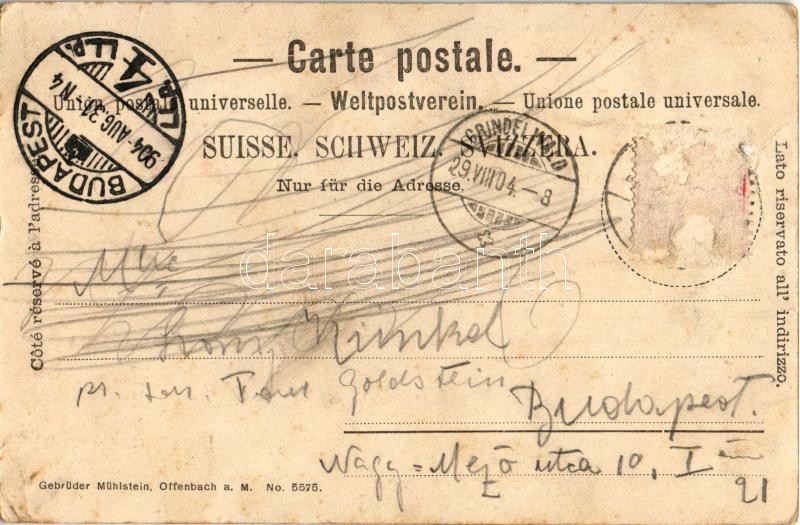 — Carte postale. —
Union postale universelle. — Weltpostverein. — Unione postale universale.
SUISSE. SCHWEIZ. SVIZZERA.
Nur für die Adresse.
Côté réservé à l'adresse.
Lato riservato all' indirizzo.
BUDAPEST
904 AUG. 31 N 4
4
GRINDELWALD
29.VIII.04.–8
darabanth
Mlle
Künkel
Goldstein
Budapest.
Nagy=Mező utca 10, I em
21
Gebrüder Mühlstein, Offenbach a. M. No. 5575.